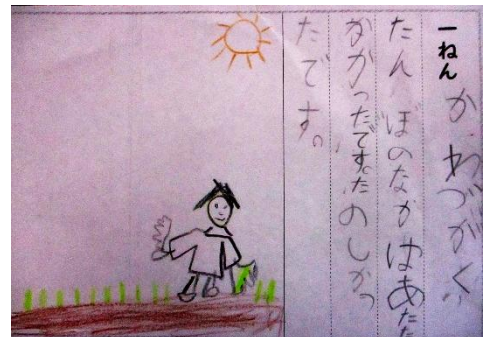 一ねん かわづがく
たんぼのなかはあたた
かかったです。たのしかっ
たです。